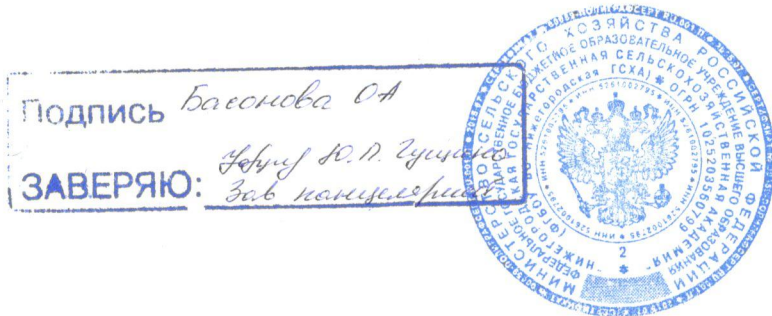 Подпись Басонова ОА
ЗАВЕРЯЮ: Ю.П. Гущина
Зав канцелярией
МИНИСТЕРСТВО СЕЛЬСКОГО ХОЗЯЙСТВА РОССИЙСКОЙ ФЕДЕРАЦИИ
ФЕДЕРАЛЬНОЕ ГОСУДАРСТВЕННОЕ БЮДЖЕТНОЕ ОБРАЗОВАТЕЛЬНОЕ УЧРЕЖДЕНИЕ ВЫСШЕГО ОБРАЗОВАНИЯ
"НИЖЕГОРОДСКАЯ ГОСУДАРСТВЕННАЯ СЕЛЬСКОХОЗЯЙСТВЕННАЯ АКАДЕМИЯ"
(ФГБОУ ВО Нижегородская ГСХА) * ОГРН 1025203560799
* ИНН 5261002795 * ИНН 5261002795 * ИНН 5261002795
2